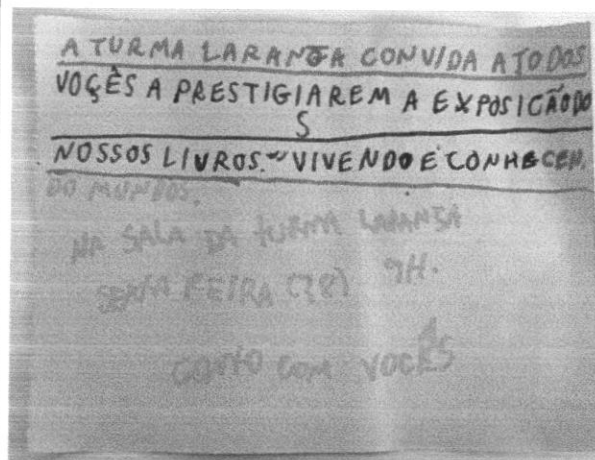 A TURMA LARANJA CONVIDA A TODOS
VOÇÊS A PRESTIGIAREM A EXPOSICÃO DO
S
NOSSOS LIVROS. "VIVENDO E CONHECEN.
DO MUNDOS.
NA SALA DA TURMA LARANJA
SEXTA FEIRA (28) 9H.
CONTO COM VOCÊS